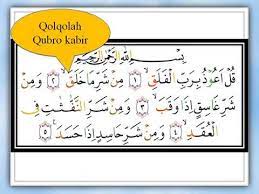 Qolqolah
Qubro kabir
بِسْمِ اللهِ الرَّحْمٰنِ الرَّحِيْمِ
قُلْ اَعُوْذُ بِرَبِّ الْفَلَقِۙ ۝١ مِنْ شَرِّ مَا خَلَقَۙ ۝٢ وَمِنْ
شَرِّ غَاسِقٍ اِذَا وَقَبَۙ ۝٣ وَمِنْ شَرِّ النَّفّٰثٰتِ فِى
الْعُقَدِۙ ۝٤ وَمِنْ شَرِّ حَاسِدٍ اِذَا حَسَدَ ۝٥